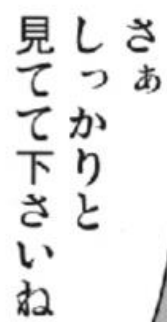 さぁ
しっかりと
見てて下さいね